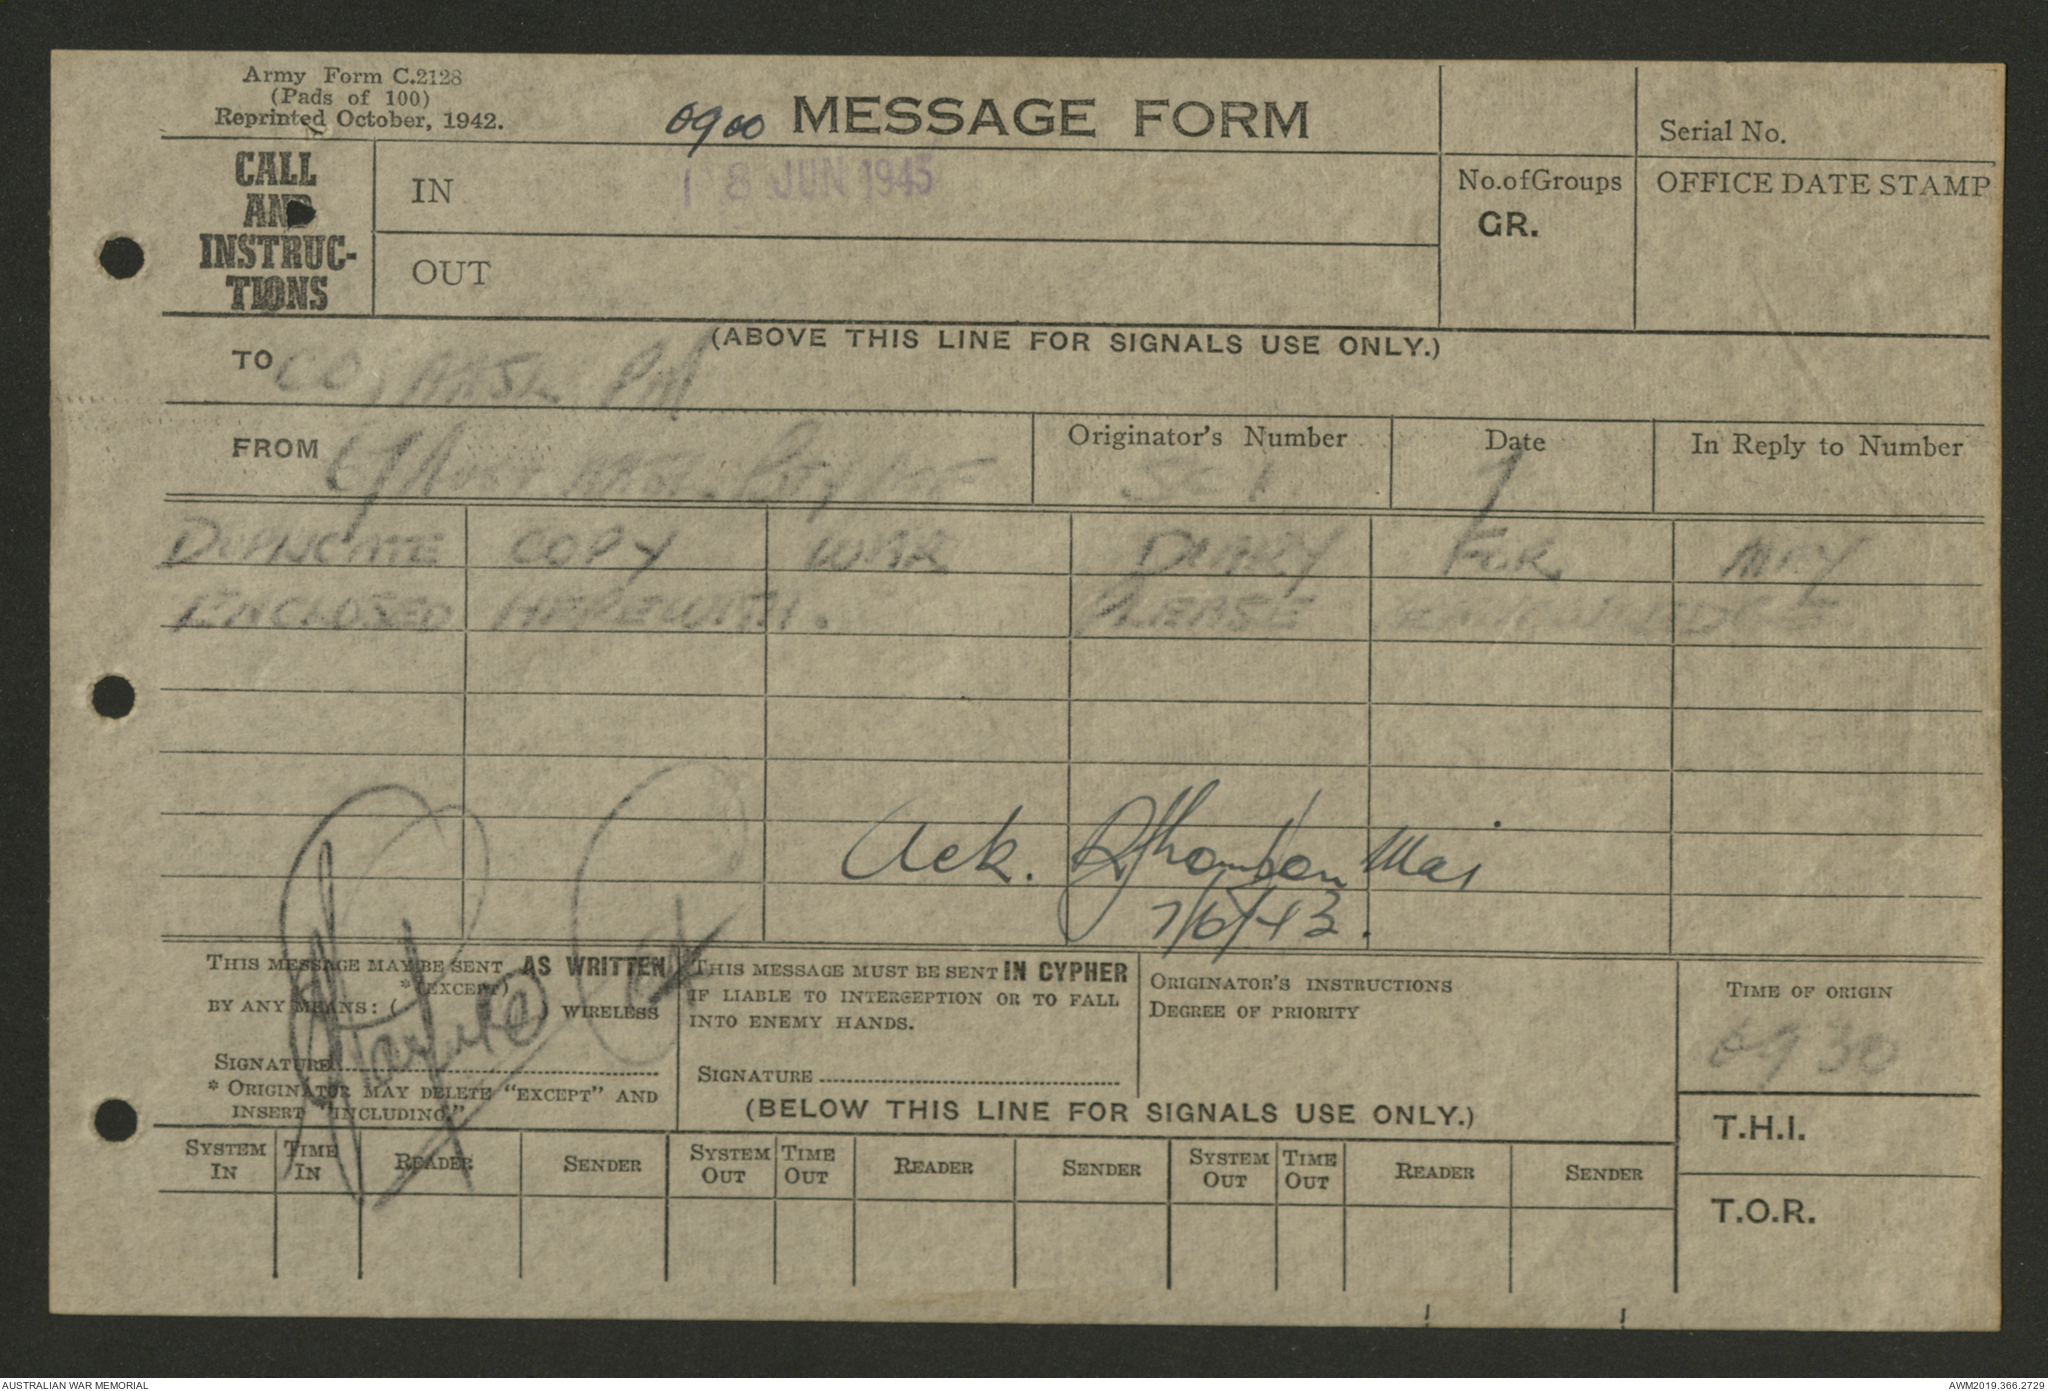 Army Form C.2128
(Pads of 100)
Reprinted October, 1942.
0900 MESSAGE FORM
Serial No.
CALL AND INSTRUC-TIONS
IN
18 JUN 1943
No. of Groups
GR.
OFFICE DATE STAMP
OUT
(ABOVE THIS LINE FOR SIGNALS USE ONLY.)
TO CO, AASL PM
FROM
Originator's Number
Date 7
In Reply to Number
DUPLICATE COPY WAR DIARY FOR MAY
ENCLOSED HEREWITH. PLEASE
Ack. Maj
7/6/43.
THIS MESSAGE MAY BE SENT AS WRITTEN
*(EXCEPT)
BY ANY MEANS: ( ) WIRELESS
SIGNATURE
* ORIGINATOR MAY DELETE "EXCEPT" AND
INSERT "INCLUDING."
THIS MESSAGE MUST BE SENT IN CYPHER
IF LIABLE TO INTERCEPTION OR TO FALL
INTO ENEMY HANDS.
SIGNATURE
ORIGINATOR'S INSTRUCTIONS
DEGREE OF PRIORITY
TIME OF ORIGIN
0930
(BELOW THIS LINE FOR SIGNALS USE ONLY.)
T.H.I.
SYSTEM IN TIME IN READER SENDER SYSTEM OUT TIME OUT READER SENDER SYSTEM OUT TIME OUT READER SENDER
T.O.R.
AUSTRALIAN WAR MEMORIAL
AWM2019.366.2729